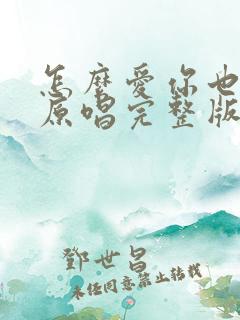 怎麼愛你也
原唱完整版
鄧世昌
未经同意禁止转载